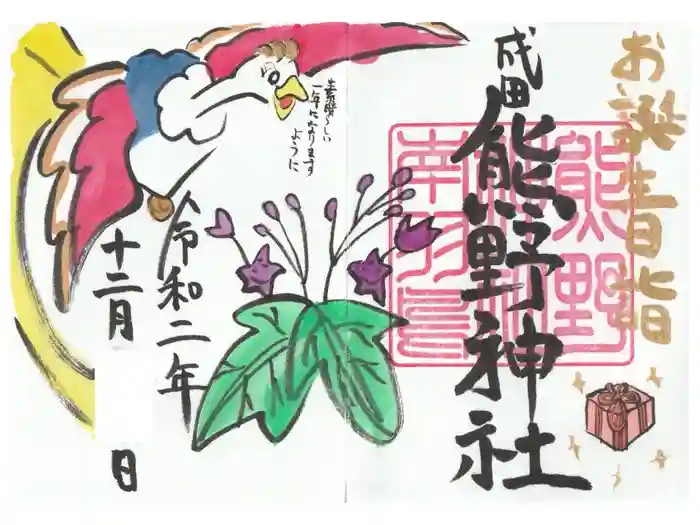 お誕生日詣
成田
熊野神社
素晴らしい
一年になります
ように
令和二年
十二月
日